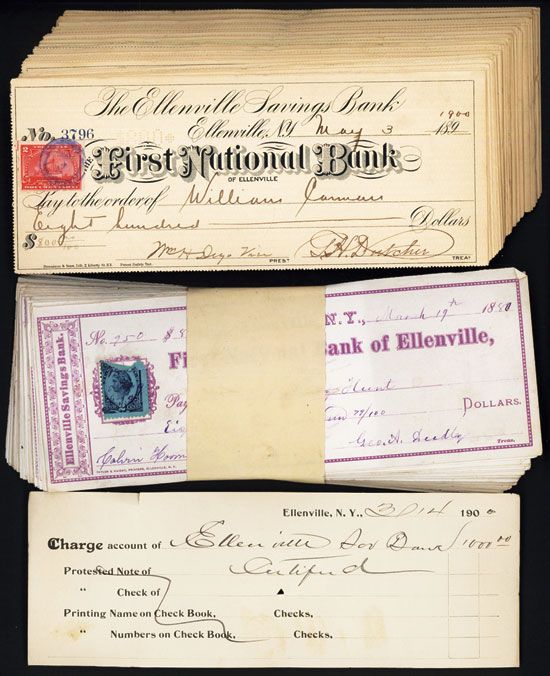 The Ellenville Savings Bank
1900
No. 3796
Ellenville, N.Y. May 3 189
THE
First National Bank
OF ELLENVILLE
Pay to the order of William
Eight hundred Dollars
$ 800
Wm H
T.H. Dutcher
PREST TREAS
Ellenville Savings Bank.
N.Y., March 19th 1880
No. 250 $ 8
Fi Bank of Ellenville,
Hunt
Pay
DOLLARS.
Calvin
Geo. A. Dudley
Treas.
Ellenville, N. Y., 3/14 1900
Charge account of Ellenville Sav Bank $1000.00
Protested Note of Certified
" Check of
Printing Name on Check Book, Checks,
" Numbers on Check Book, Checks,